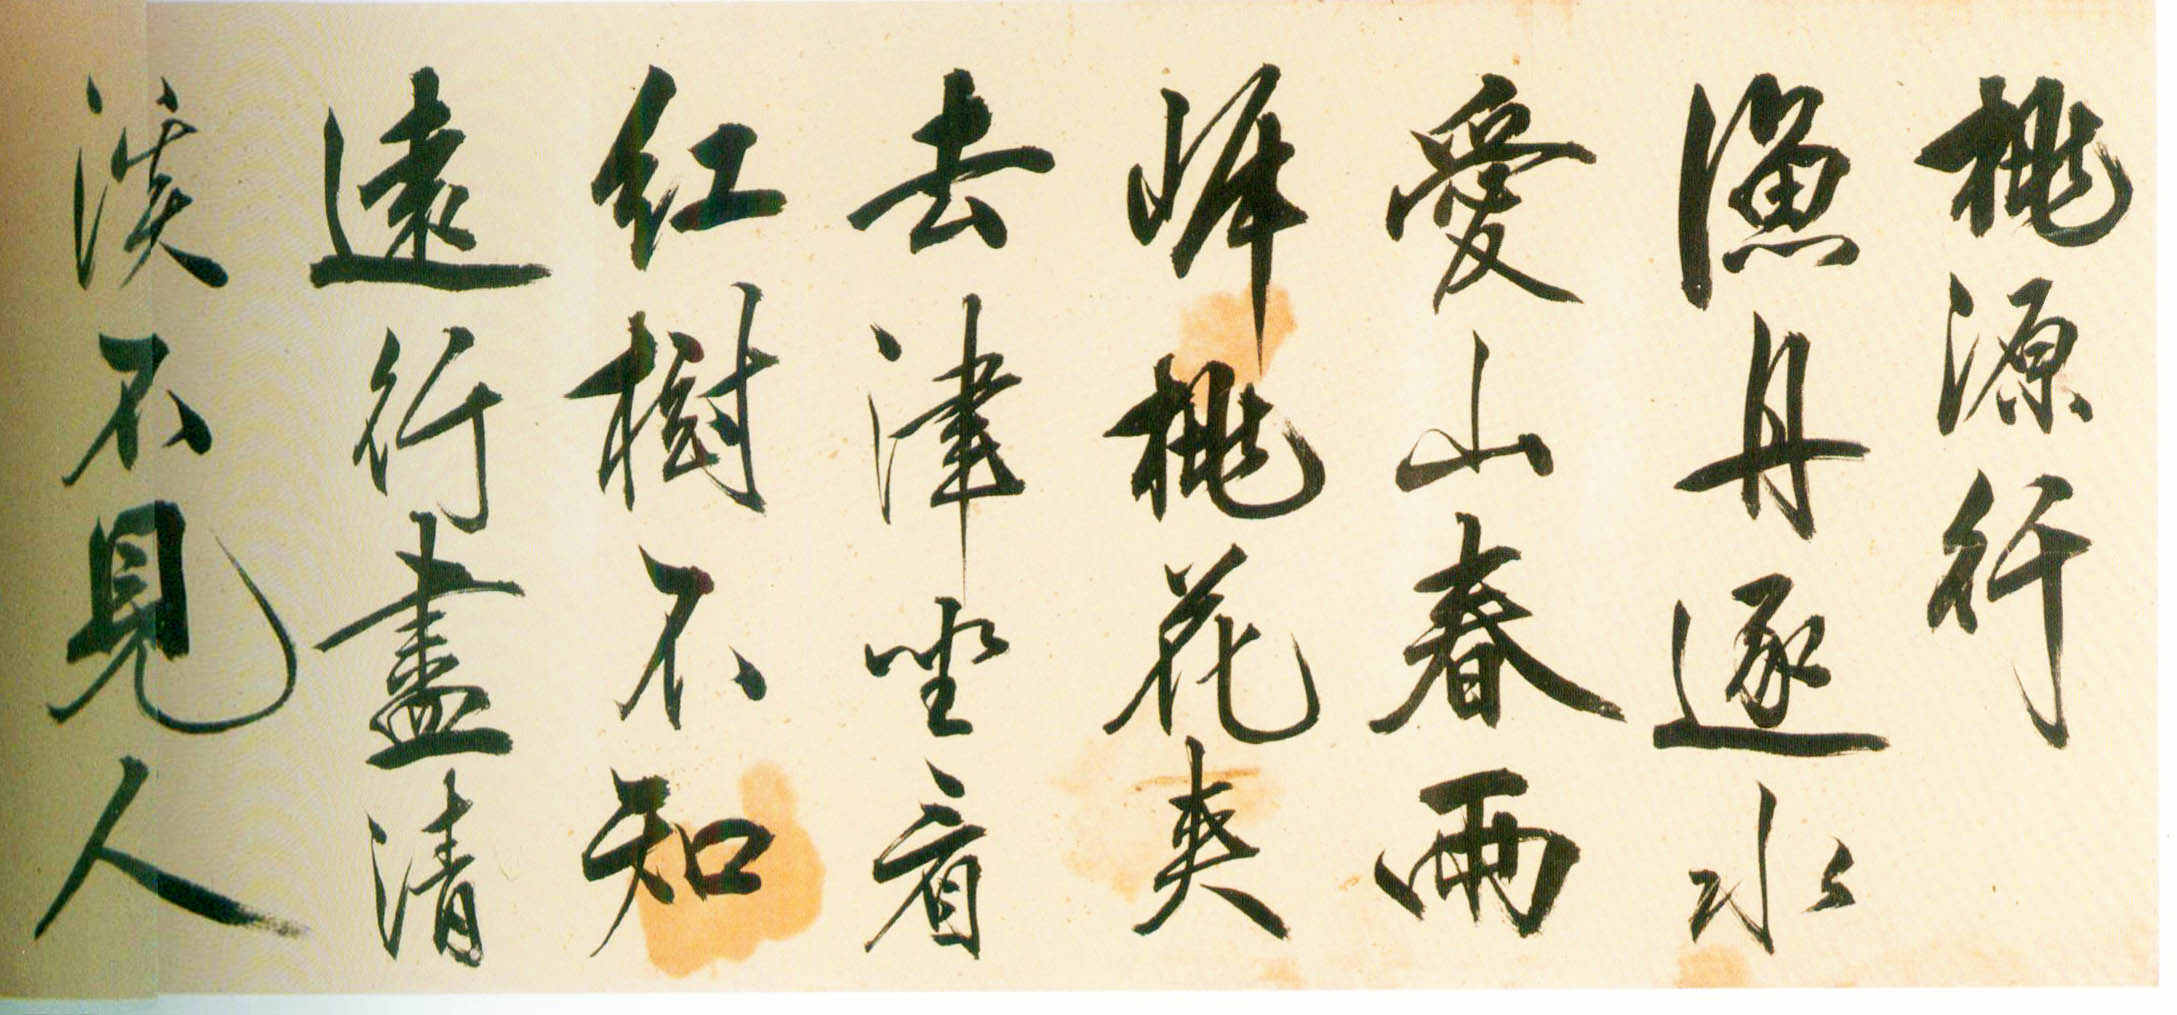 桃源行
漁舟逐水
愛山春兩
岸桃花夾
去津坐看
紅樹不知
遠行盡清
溪不見人